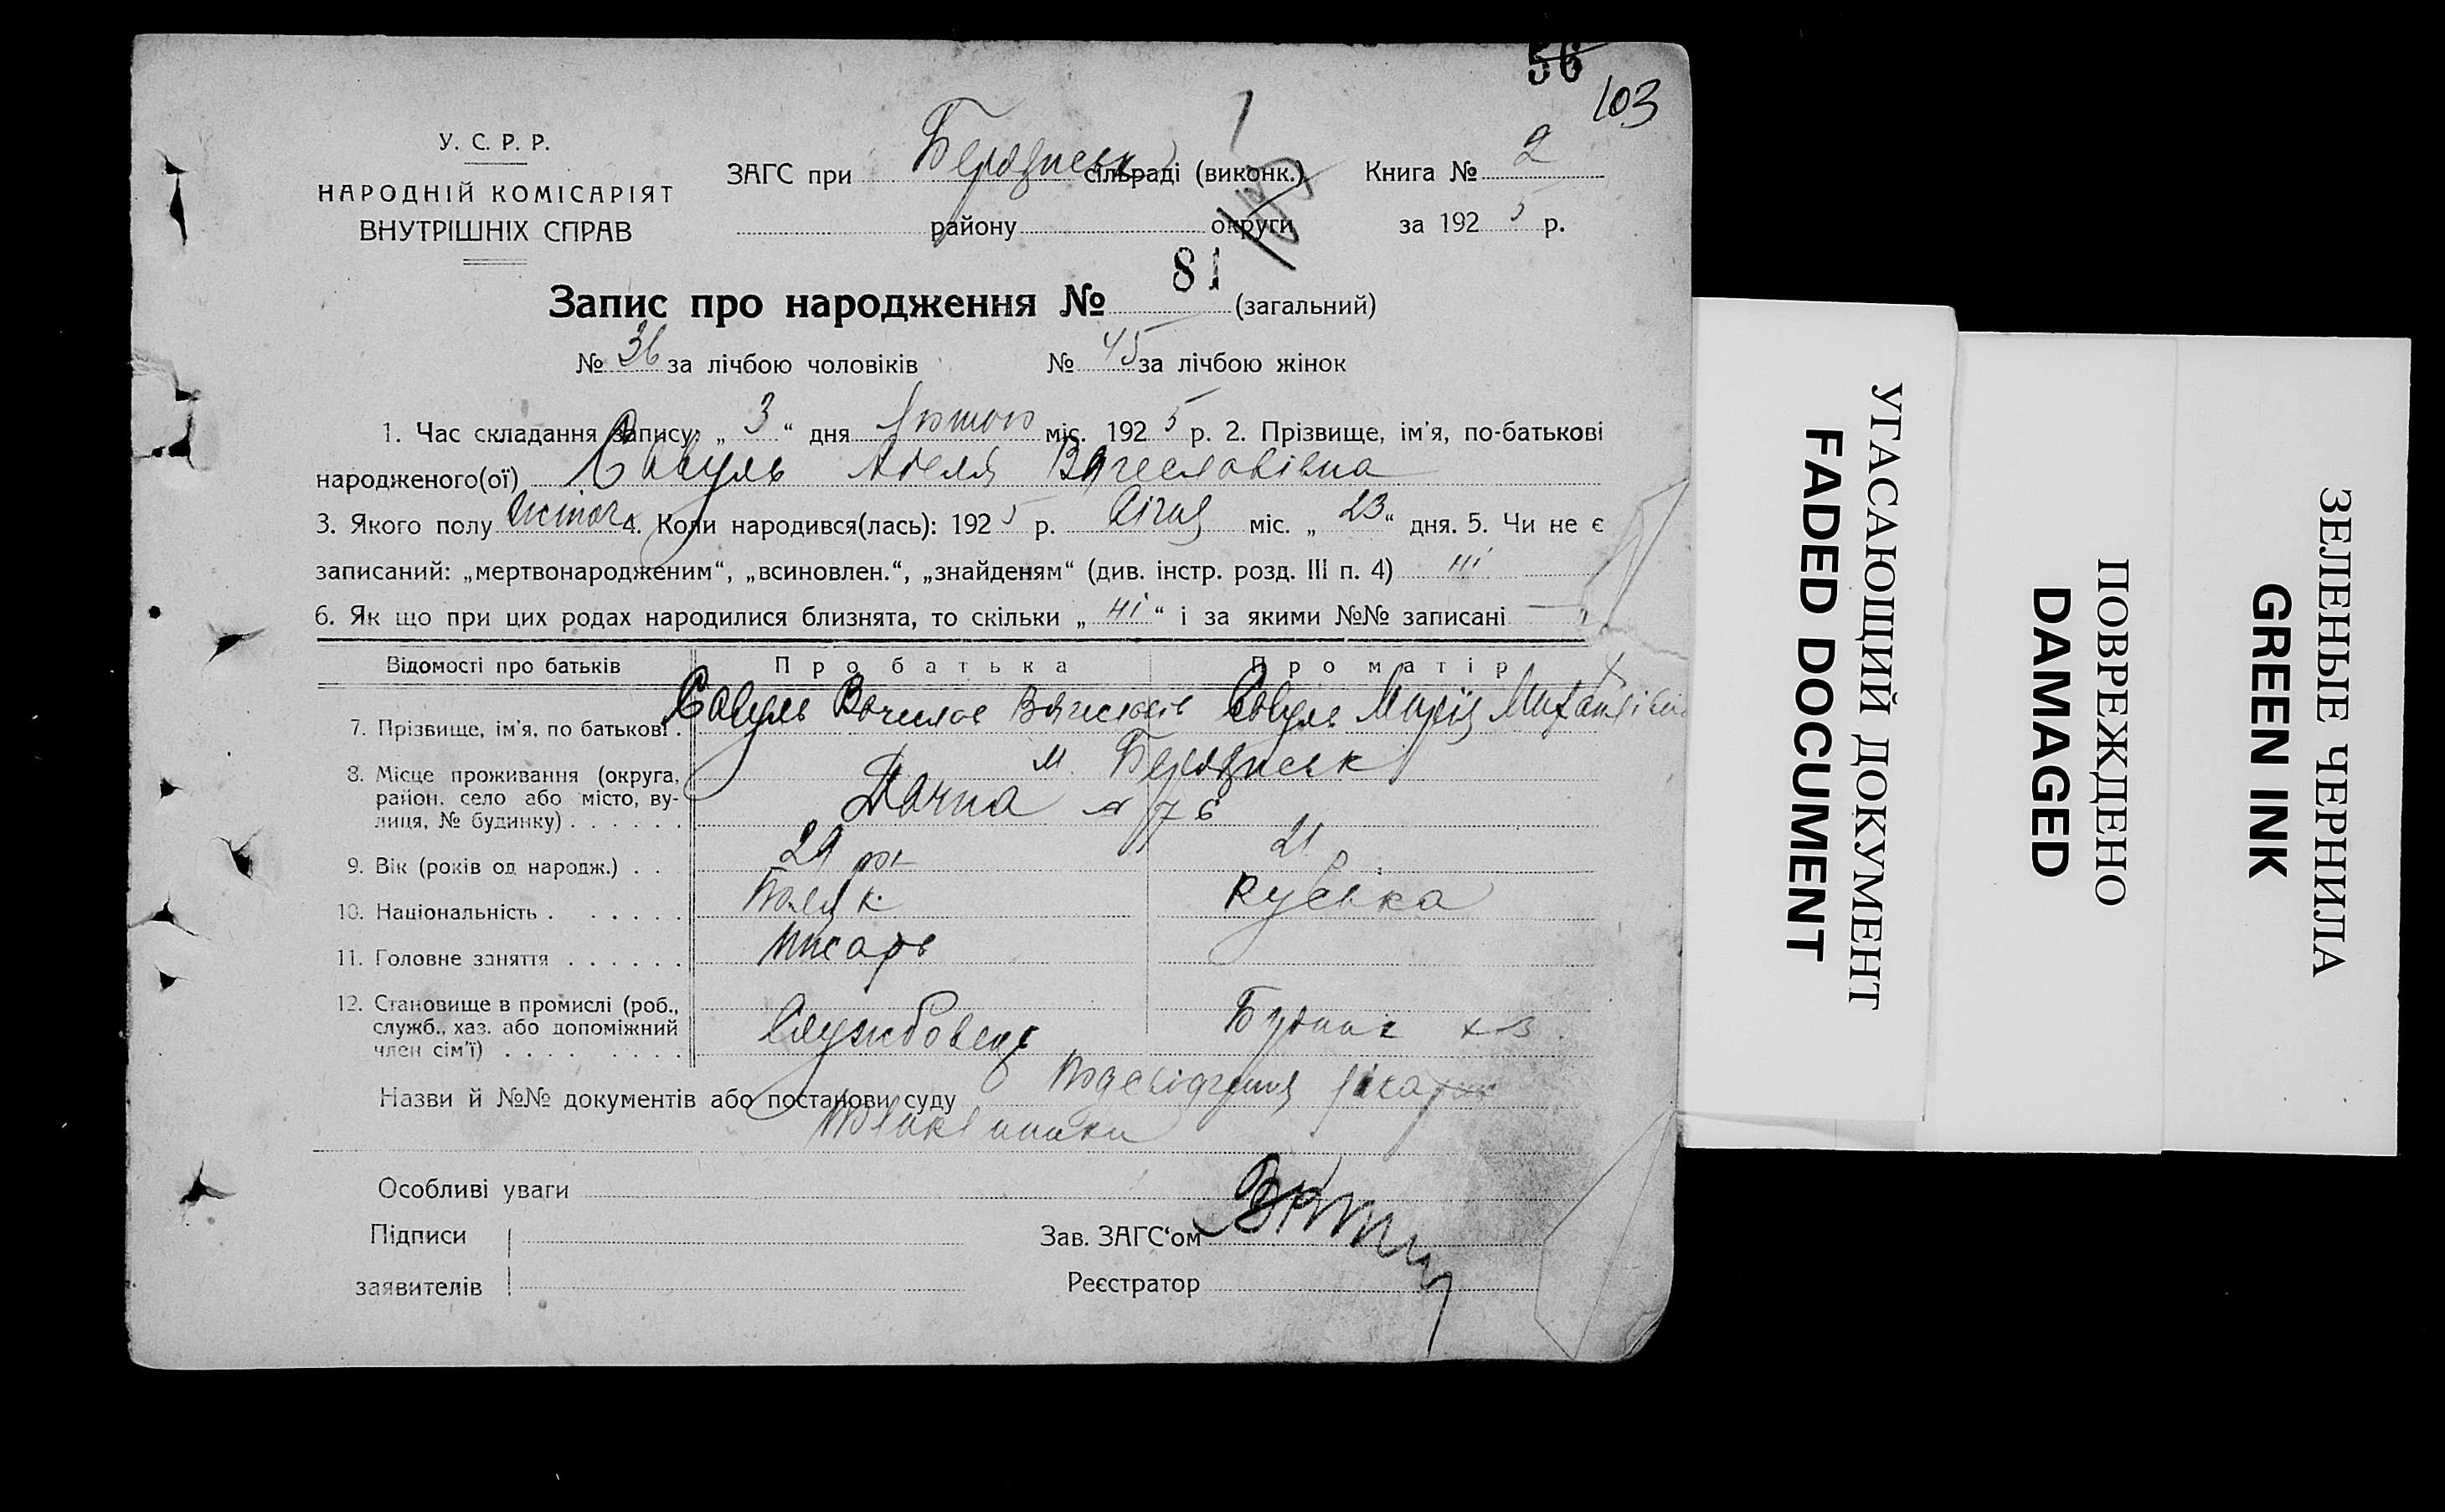 56
103
У. С. Р. Р.
НАРОДНІЙ КОМІСАРІЯТ
ВНУТРІШНІХ СПРАВ
ЗАГС при сільраді (виконк.) Книга № 2
району округи за 1925 р.
Запис про народження № 81 (загальний)
№ 36 за лічбою чоловіків № 45 за лічбою жінок
1. Час складання запису: „ 3 “ дня лютого міс. 1925 р. 2. Прізвище, ім'я, по-батькові
народженого(ої) Совуль Аделя Вячеславівна
3. Якого полу жіноч. 4. Коли народився(лась): 1925 р. Січня міс. „ 23 “ дня. 5. Чи не є
записаний: „мертвонародженим“, „всиновлен.“, „знайденям“ (див. інстр. розд. III п. 4) ні
6. Як що при цих родах народилися близнята, то скільки „ ні “ і за якими №№ записані —
Відомості про батьків Про батька Про матір
7. Прізвище, ім'я, по батькові . Совуль Совуль Марія Михайлівна
8. Місце проживання (округа, м.
район, село або місто, ву- Дачна № 76
лиця, № будинку) . . . . . .
9. Вік (років од народж.) . . 29 21
10. Національність . . . . . . Поляк Руська
11. Головне заняття . . . . . . писарь
12. Становище в промислі (роб.,
служб., хаз. або допоміжний Службовець
член сім'ї) . . . . . . . .
Назви й №№ документів або постанови суду Посвідчення лікаря
Поліклиники
Особливі уваги
Підписи Зав. ЗАГС‘ом
заявителів Реєстратор
УГАСАЮЩИЙ ДОКУМЕНТ
FADED DOCUMENT
ПОВРЕЖДЕНО
DAMAGED
ЗЕЛЕНЫЕ ЧЕРНИЛА
GREEN INK